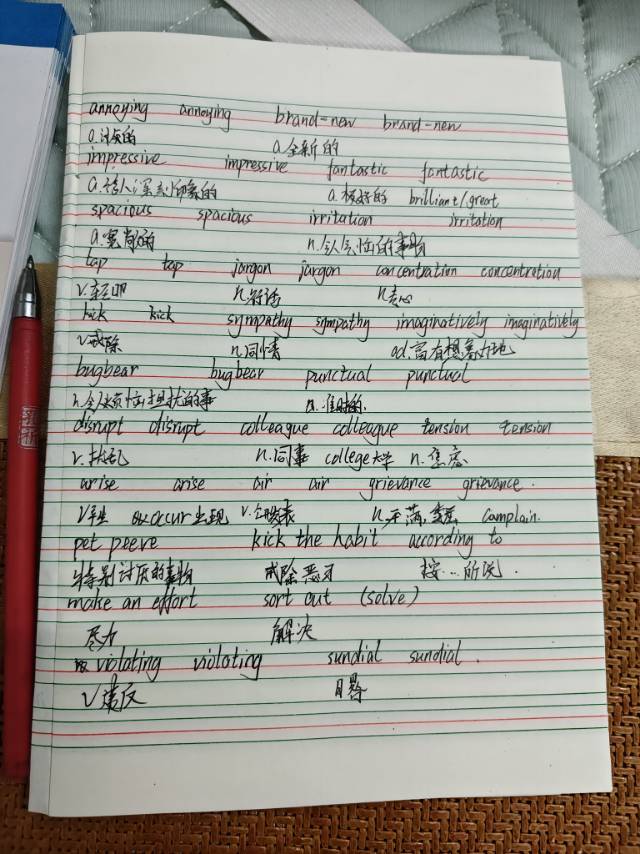 annoying annoying brand-new brand-new
a.讨厌的 a.全新的
impressive impressive fantastic fantastic
a.令人深刻印象的 a.极好的 brilliant/great
spacious spacious irritation irritation
a.宽敞的 n.令人气恼的事物
tap tap jargon jargon concentration concentration
v.轻叩 n.行话 n.专心
kick kick sympathy sympathy imaginatively imaginatively
v.戒除 n.同情 ad.富有想象力地
bugbear bugbear punctual punctual
n.令人烦恼担扰的事 a.准时的.
disrupt disrupt colleague colleague tension tension
v.扰乱 n.同事 college大学 n.焦虑
arise arise air air grievance grievance.
v产生 occur出现 v. n.不满, complain.
pet peeve kick the habit according to
特别讨厌的事物 戒除恶习 按...所说.
make an effort sort out (solve)
尽力 解决
violating violating sundial sundial.
v违反 日晷